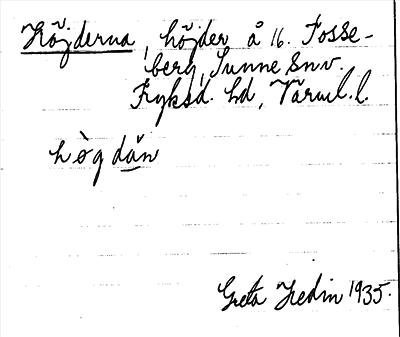 Höjderna, höjder å 16. Fosse-
berg, Sunne sn v.
Fryksd. hd, Värml. l.
hògdän
Greta Hedin 1935.